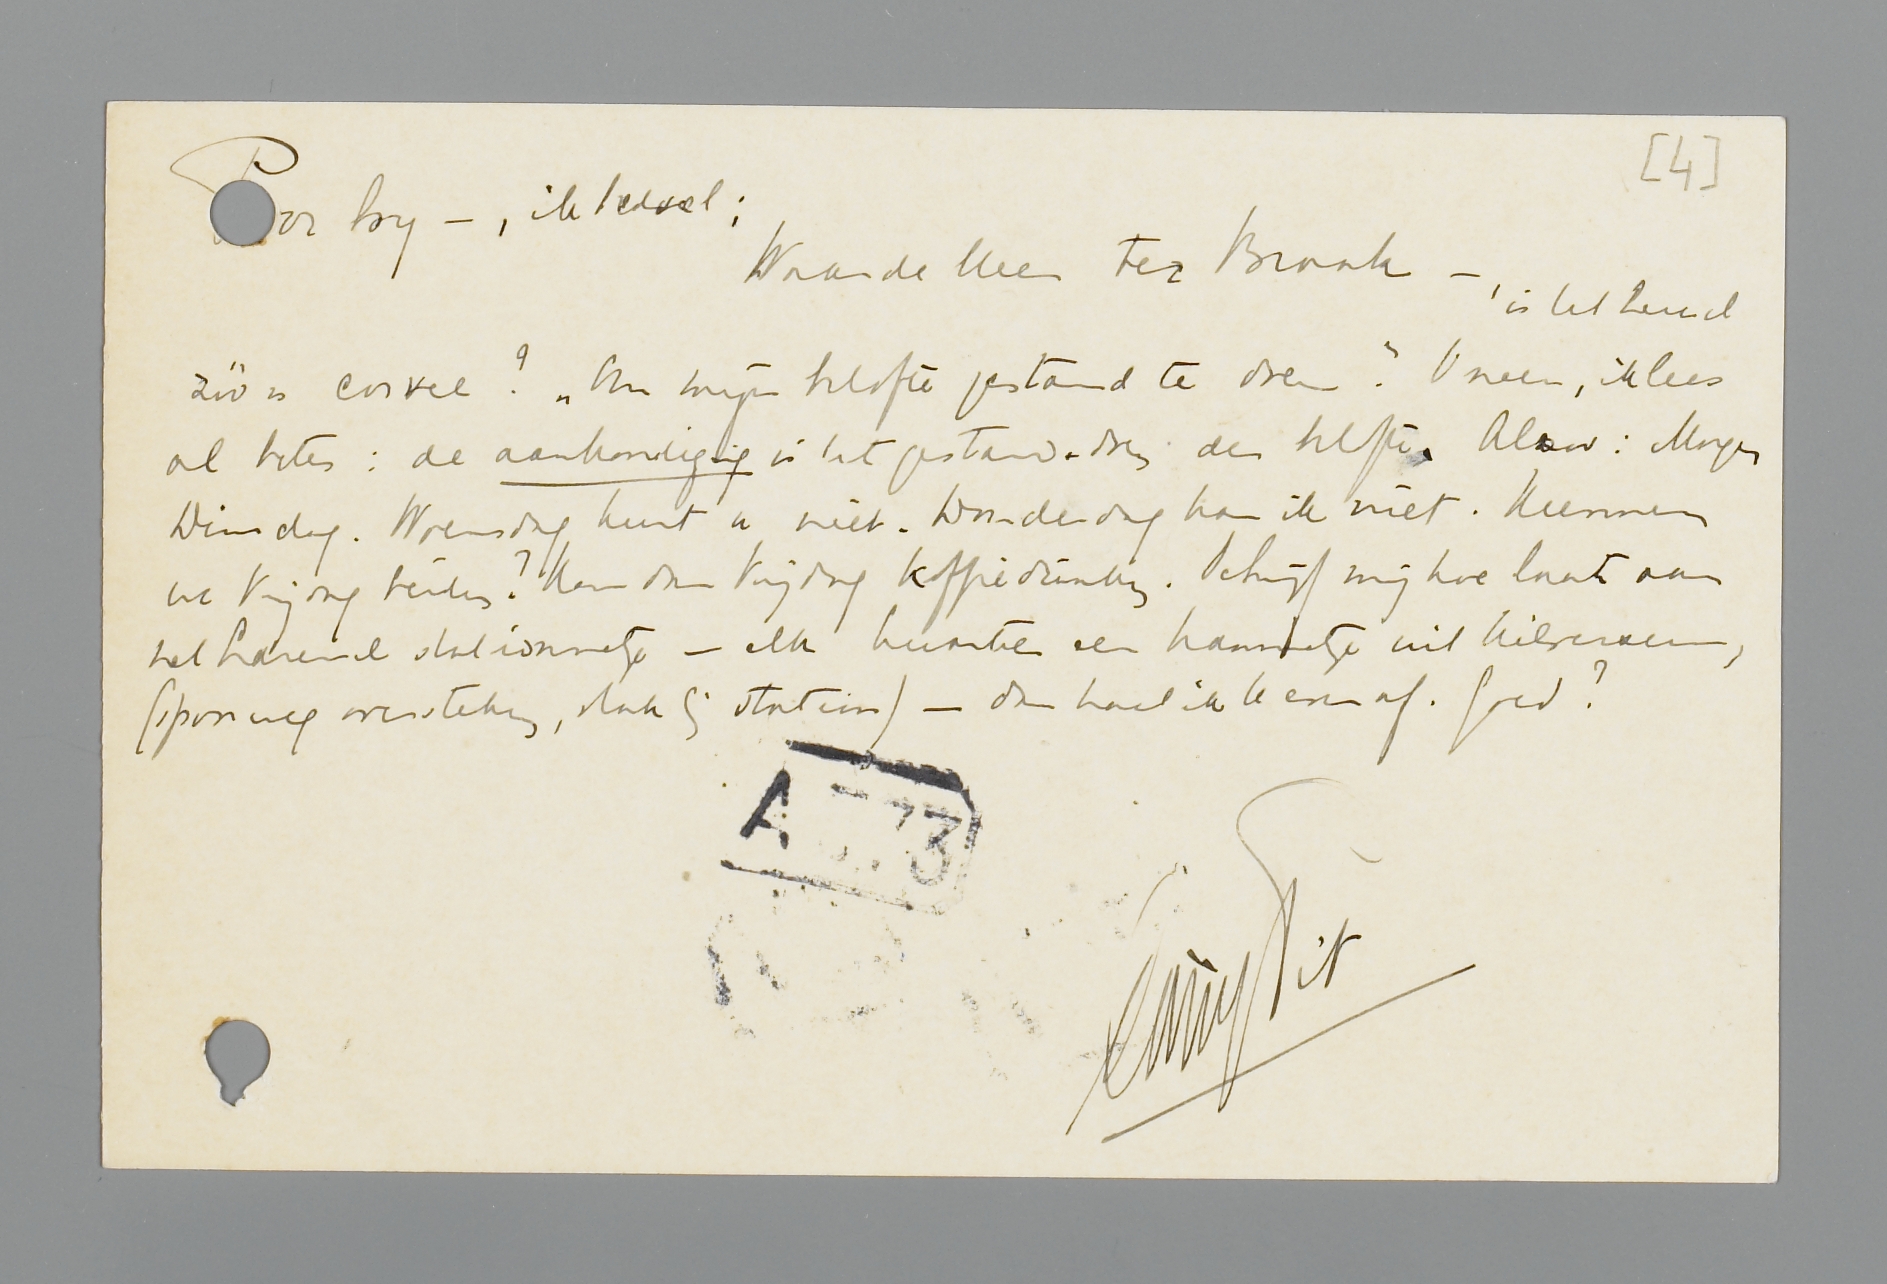 [4]
ik
Waarde Heer ter Braak —, is het heusch
zóó'n corvee? „Om mijn belofte gestand te doen"? O neen, ik lees
al beter: de aankondiging is het gestand-doen der belofte. Alzoo: Morgen
Dinsdag. Woensdag kunt u niet. Donderdag kan ik niet. Kunnen
we Vrijdag beiden? Kom dan Vrijdag koffiedrinken. Schrijf mij hoe laat aan
het Larensche stationnetje — elk kwartier een trammetje uit Hilversum,
(spoorweg oversteken, vlak bij station) — dan haal ik U even af. Goed?
A 73